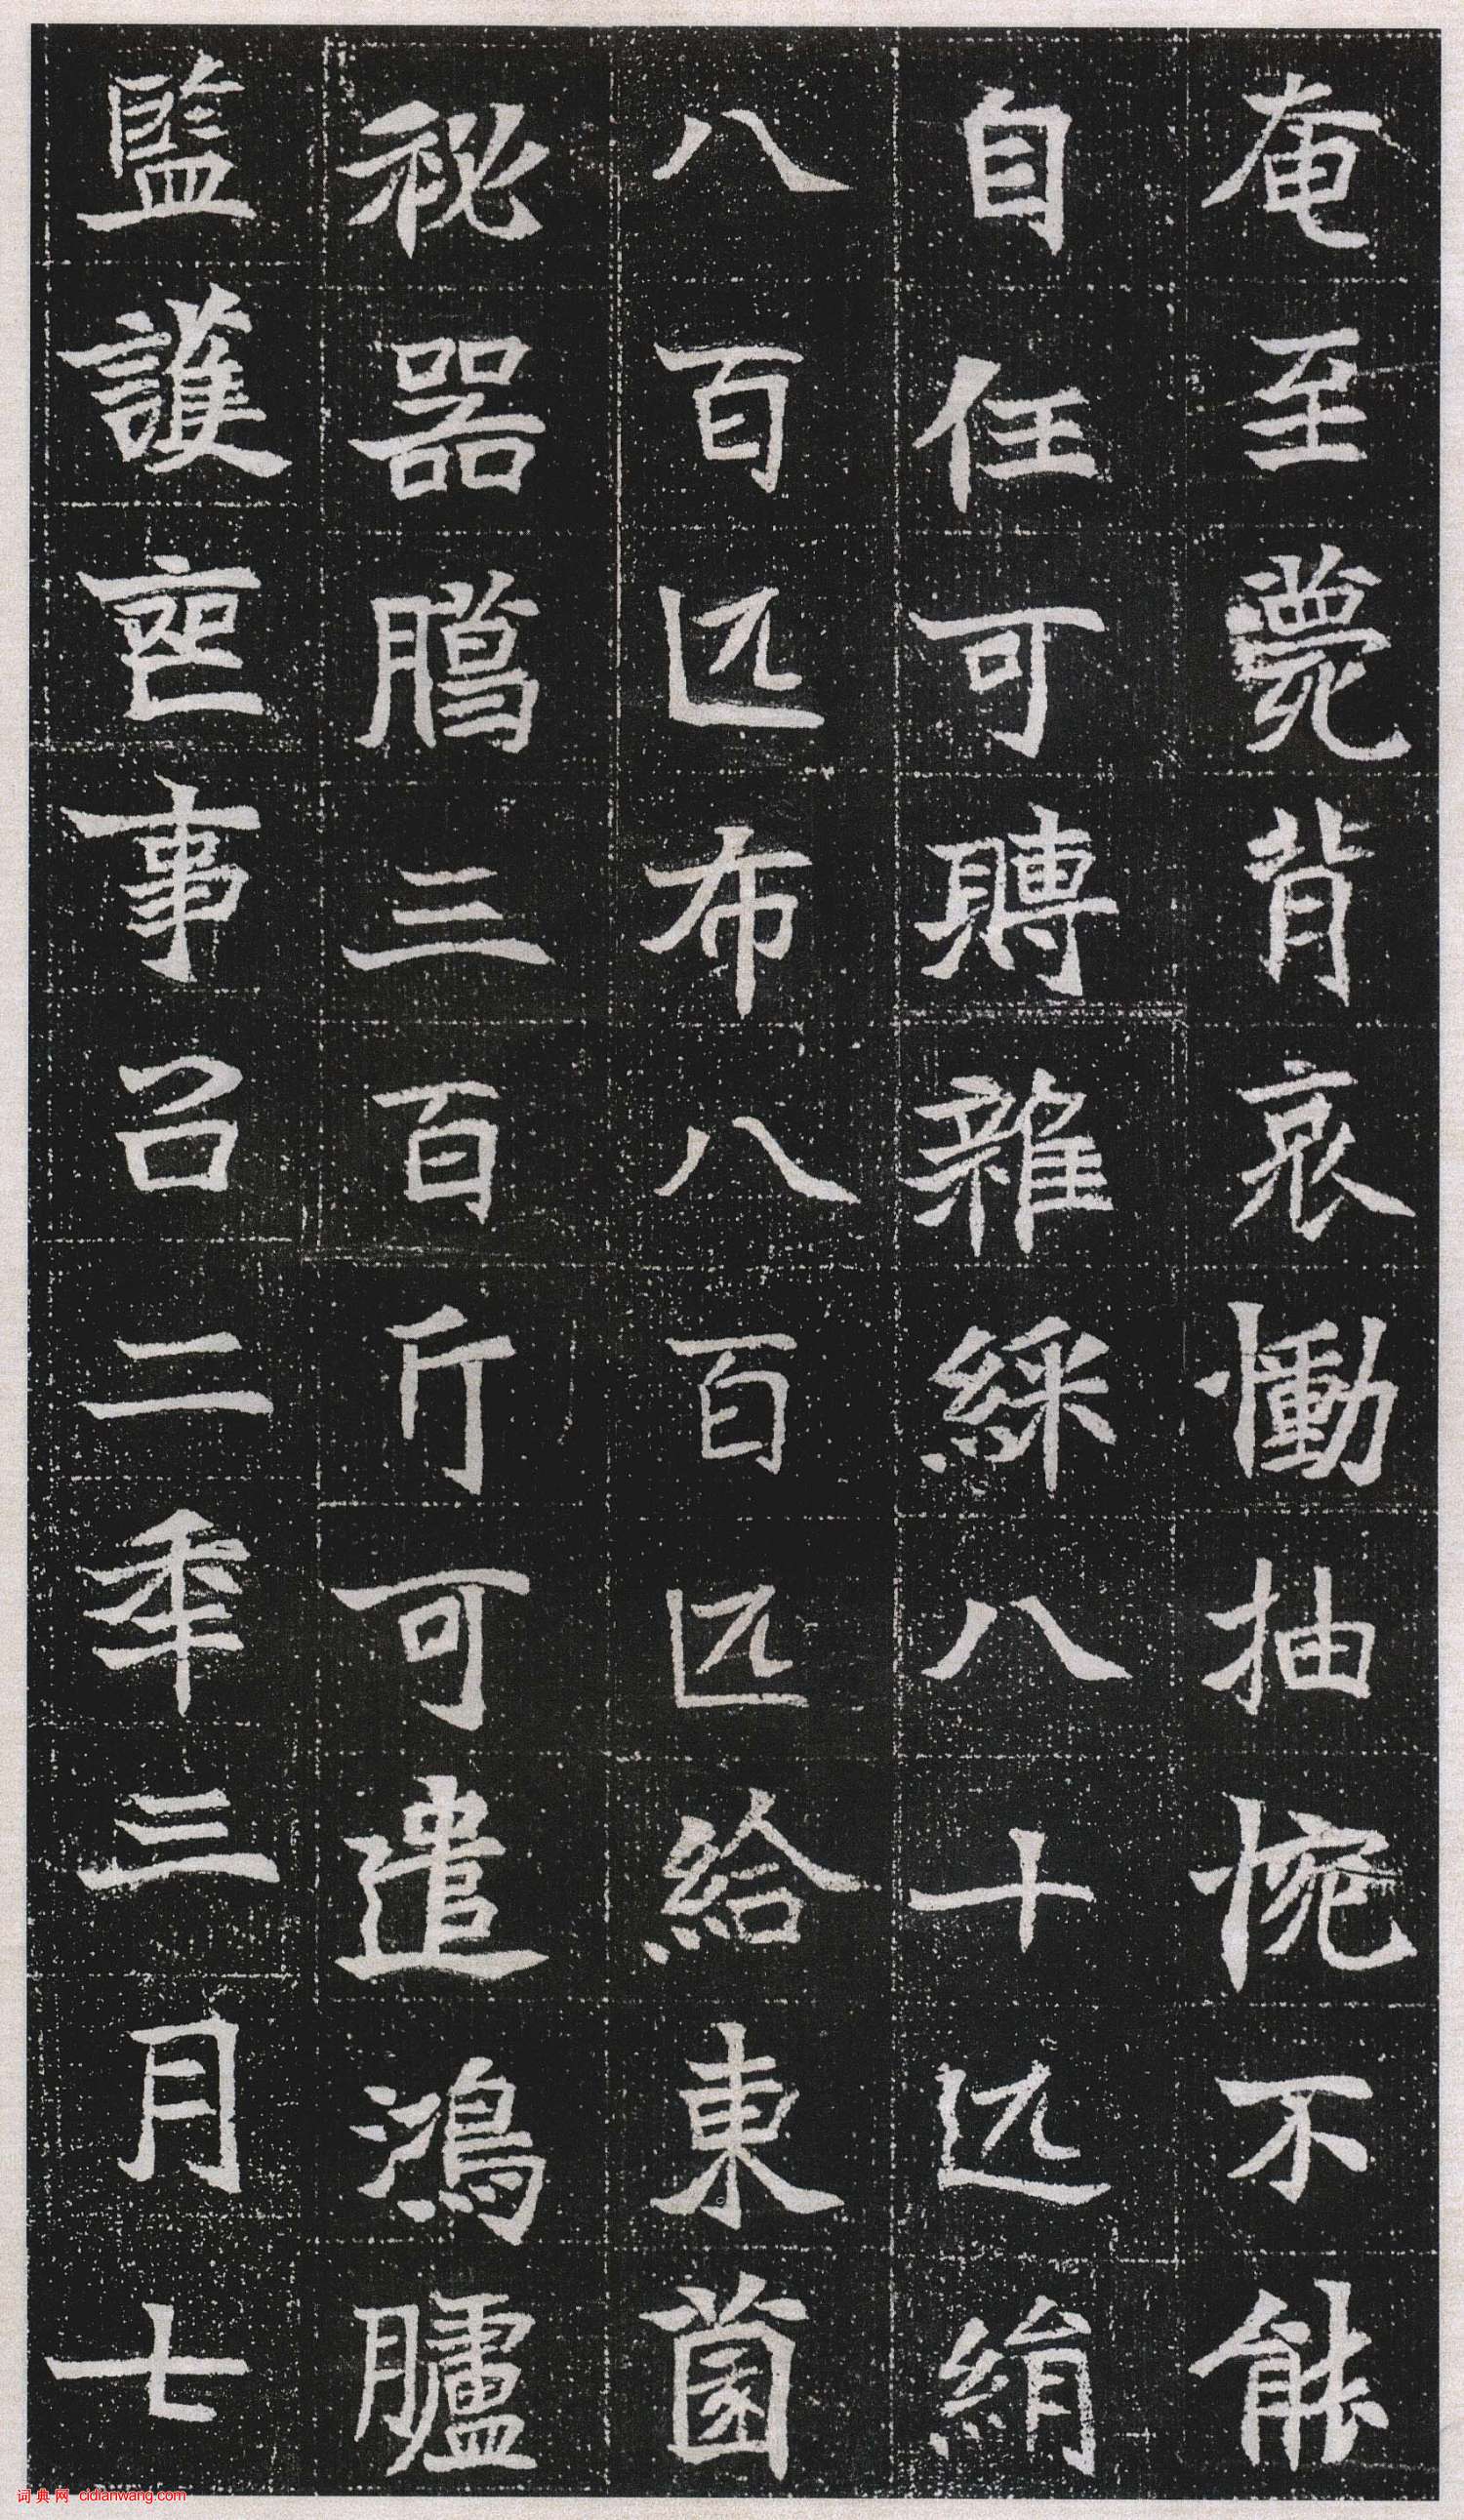 奄至薨背哀慟抽惋不能
自任可賵雜綵八十匹絹
八百匹布八百匹給東薗
祕器腸三百斤可遣鴻臚
監護喪事召二秊三月七
词典网 cidianwang.com